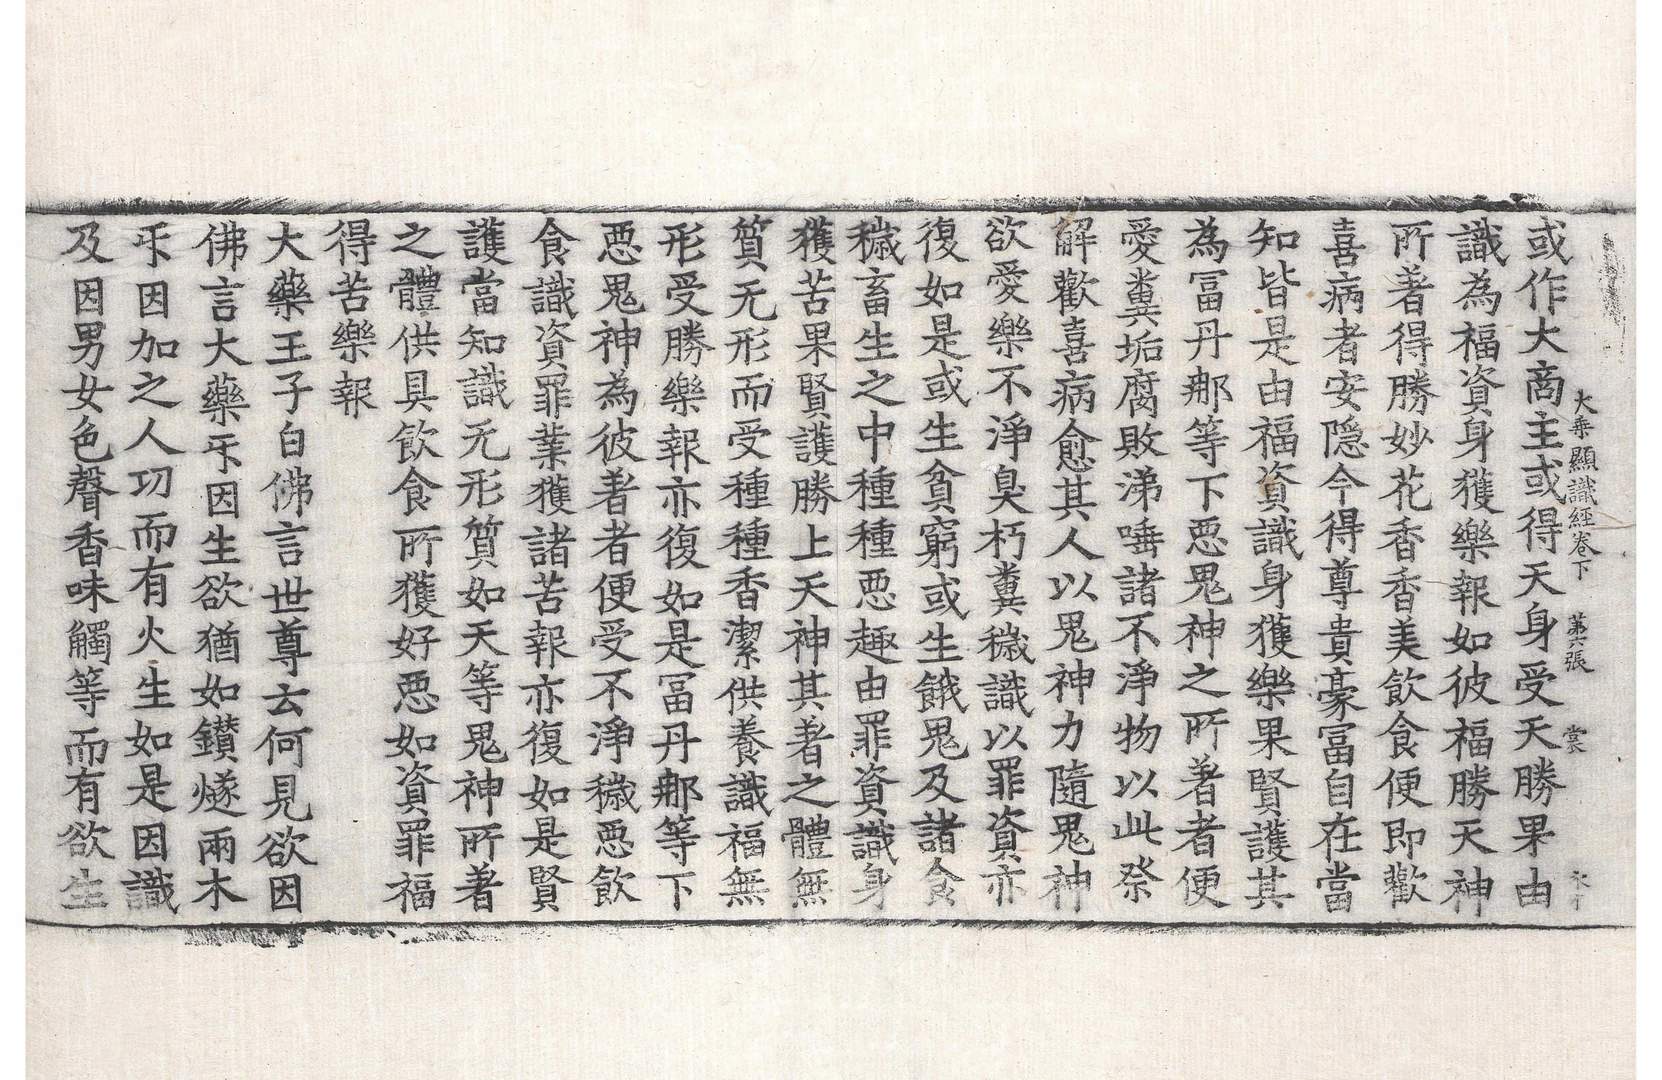 大乗顯識經卷下 第六張 裳
或作大商主或得天身受天勝果由
識為福資身獲樂報如彼福勝天神
所著得勝妙花香香美飲食便即歡
喜病者安隱今得尊貴豪冨自在當
知皆是由福資識身獲樂果賢護其
為冨丹那等下悪鬼神之所著者便
愛糞垢腐敗涕唾諸不淨物以此祭
解歡喜病愈其人以鬼神力隨鬼神
欲愛樂不淨臭朽糞穢識以罪資亦
復如是或生貧窮或生餓鬼及諸食
穢畜生之中種種悪趣由罪資識身
獲苦果賢護勝上天神其著之體無
質无形而受種種香潔供養識福無
形受勝樂報亦復如是冨丹那等下
悪鬼神為彼著者便受不淨穢悪飲
食識資罪業獲諸苦報亦復如是賢
護當知識无形質如天等鬼神所著
之體供具飲食所獲好悪如資罪福
得苦樂報
大藥王子白佛言世尊云何見欲因
佛言大藥㸦因生欲猶如鑚燧兩木
㸦因加之人功而有火生如是因識
及因男女色聲香味觸等而有欲生